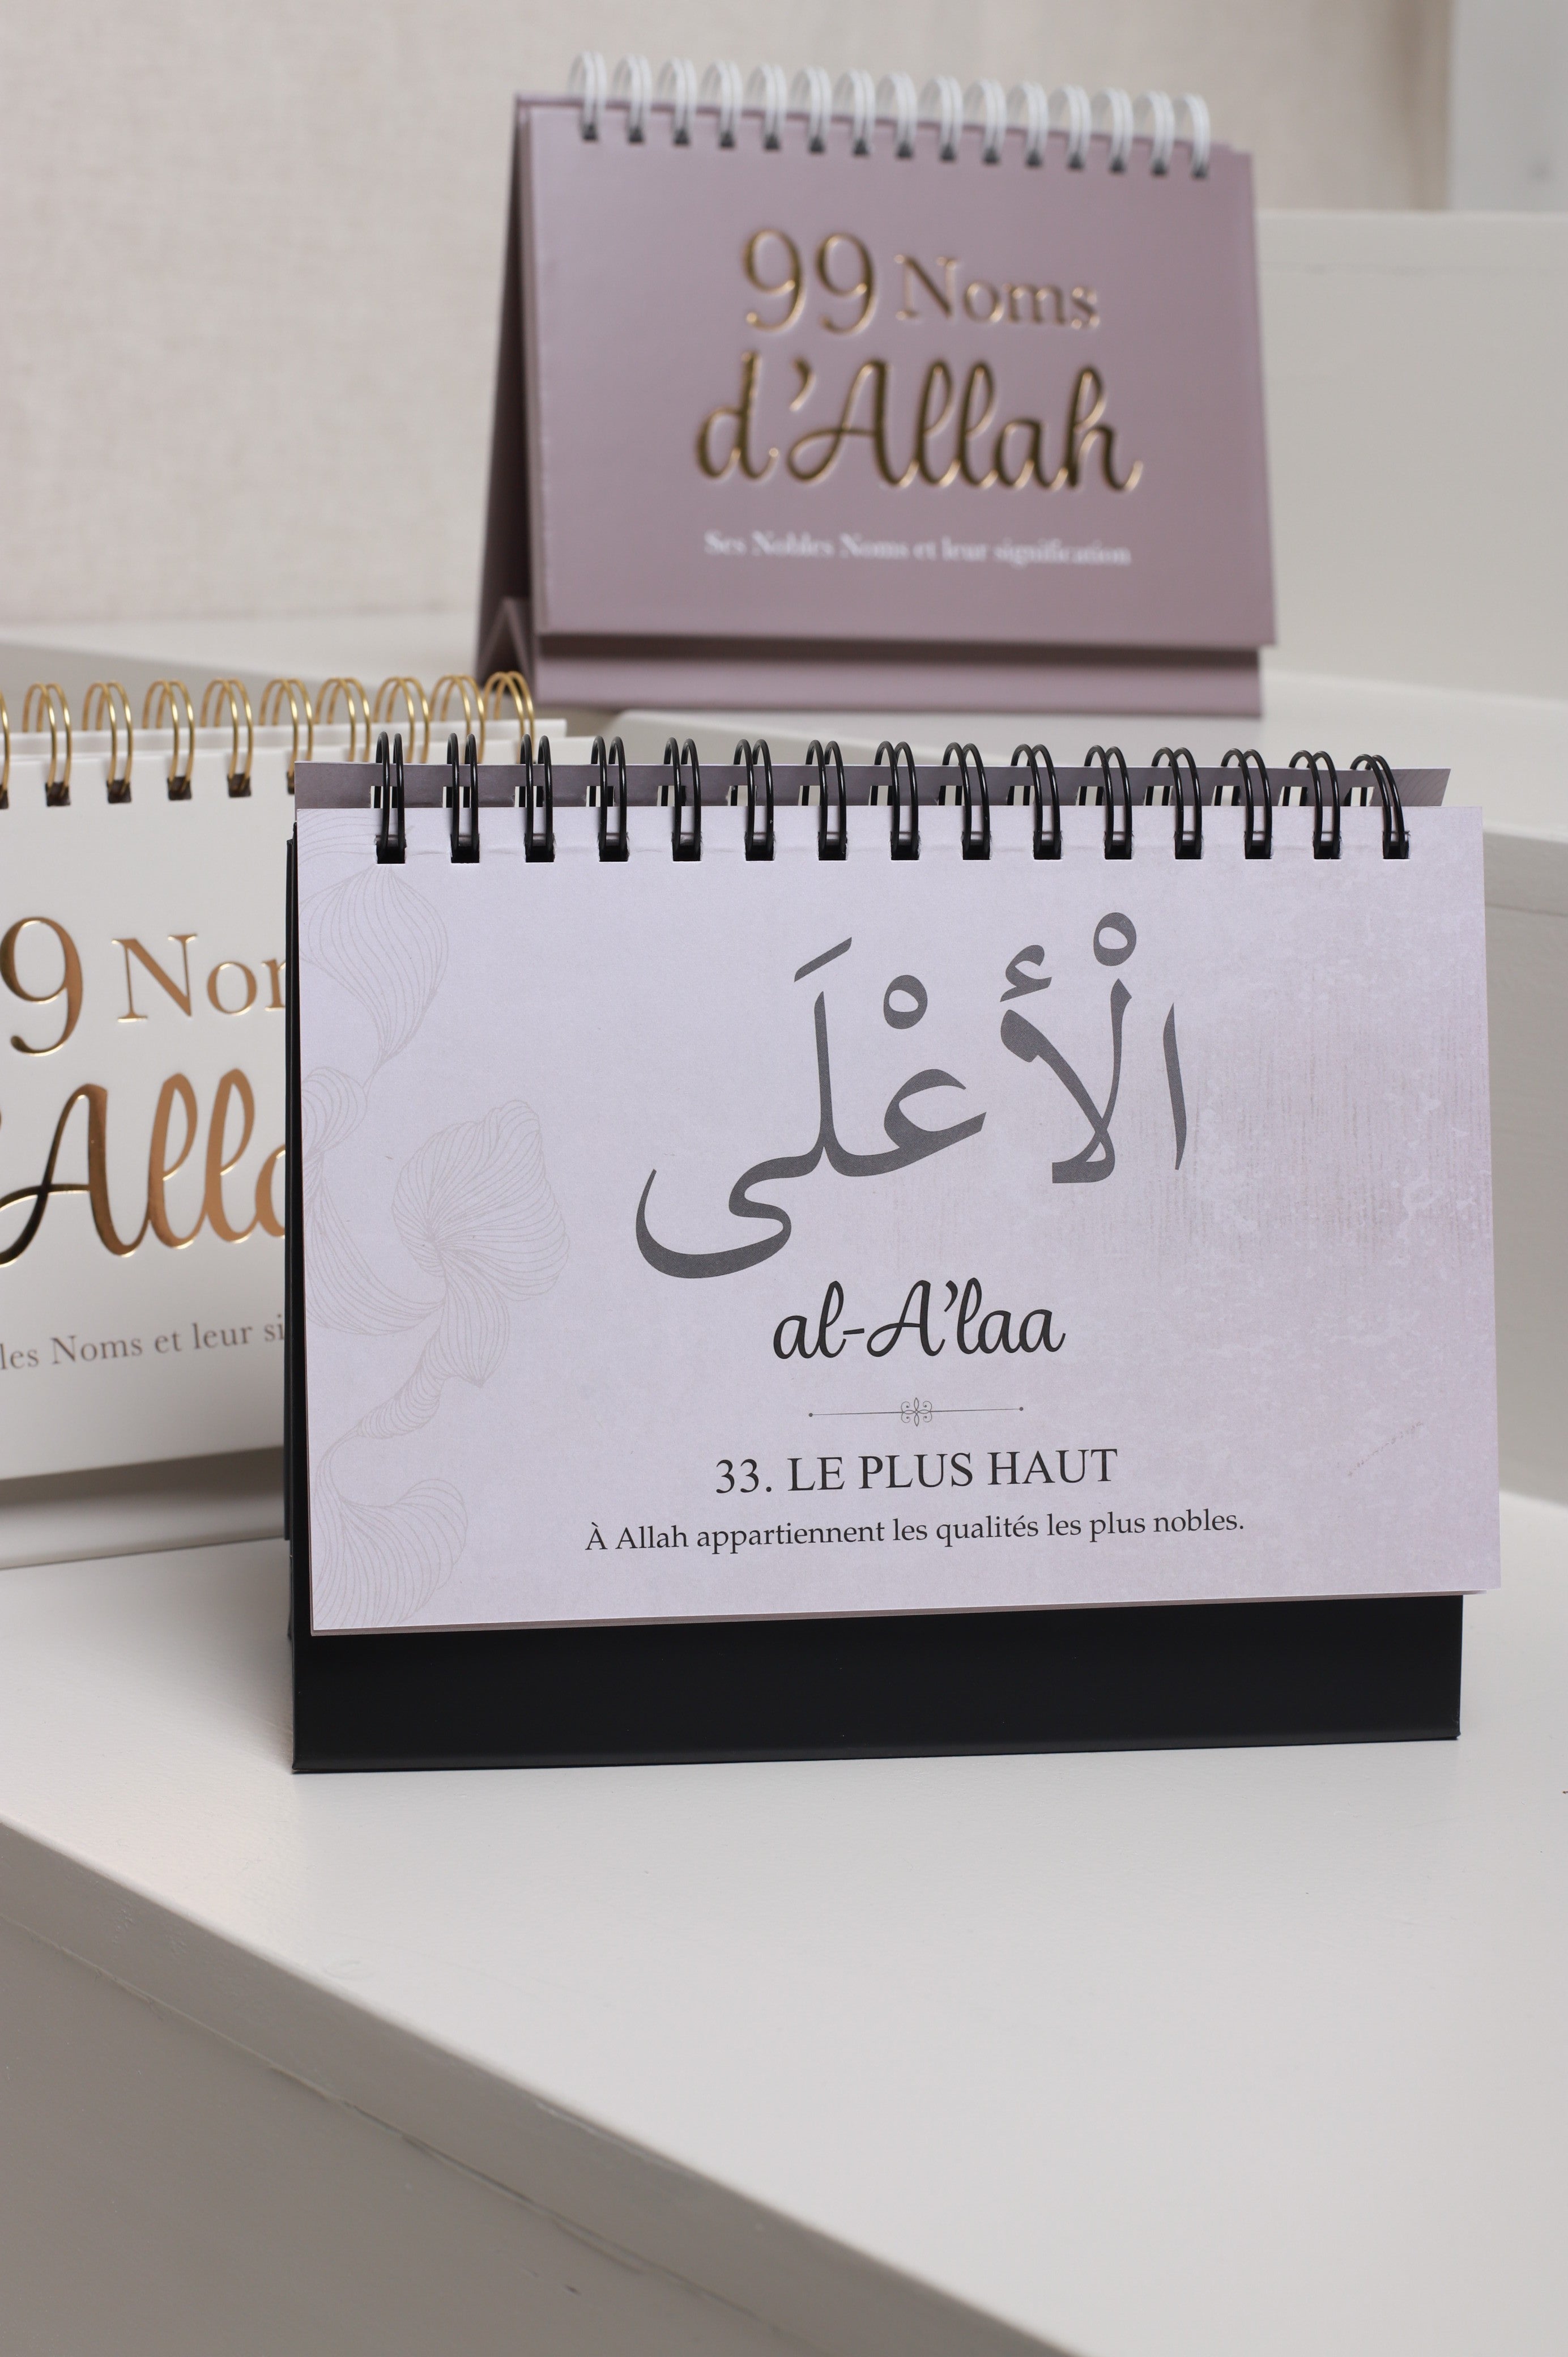 99 Noms
d'Allah
Ses Nobles Noms et leur signification
9 Nor
'Alla
les Noms et leur si
الْأَعْلَى
al-A'laa
33. LE PLUS HAUT
À Allah appartiennent les qualités les plus nobles.